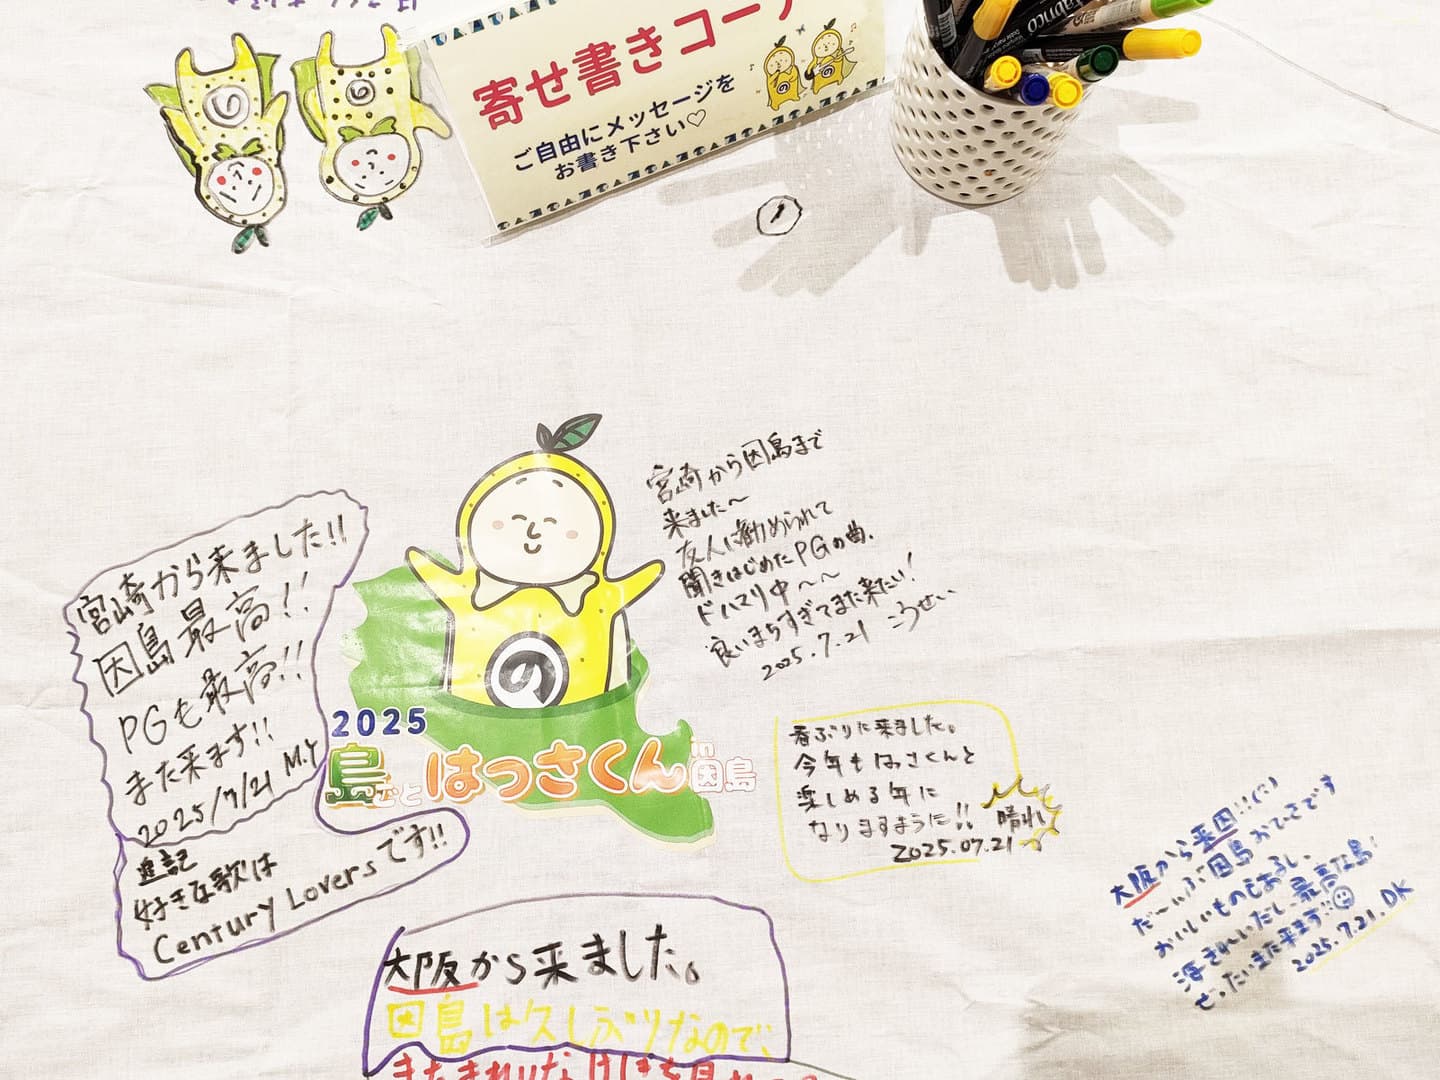 寄せ書きコー
ご自由にメッセージを
お書き下さい♡
い
の
の
宮崎から来ました!!
因島最高!!
PGも最高!!
また来ます!!
2025/7/21 M.Y
追記
好きな歌は
Century Loversです!!
宮崎から因島まで
来ました〜
友人に勧められて
聞きはじめたPGの曲、
ドハマリ中〜〜
良いまちすぎてまた来たい!
2025.7.21 こうせい
の
2025
島ごとはっさくんin因島
春ぶりに来ました。
今年もはっさくんと
楽しめる年に
なりますように!! 晴れ
2025.07.21
大阪から来因!!
だ〜いぶ因島おひさです
おいしいものもあるし、
海きれいだし、最高な島!
ぜったいまた来ます!!
2025.7.21.DK
大阪から来ました。
因島は久しぶりなので、